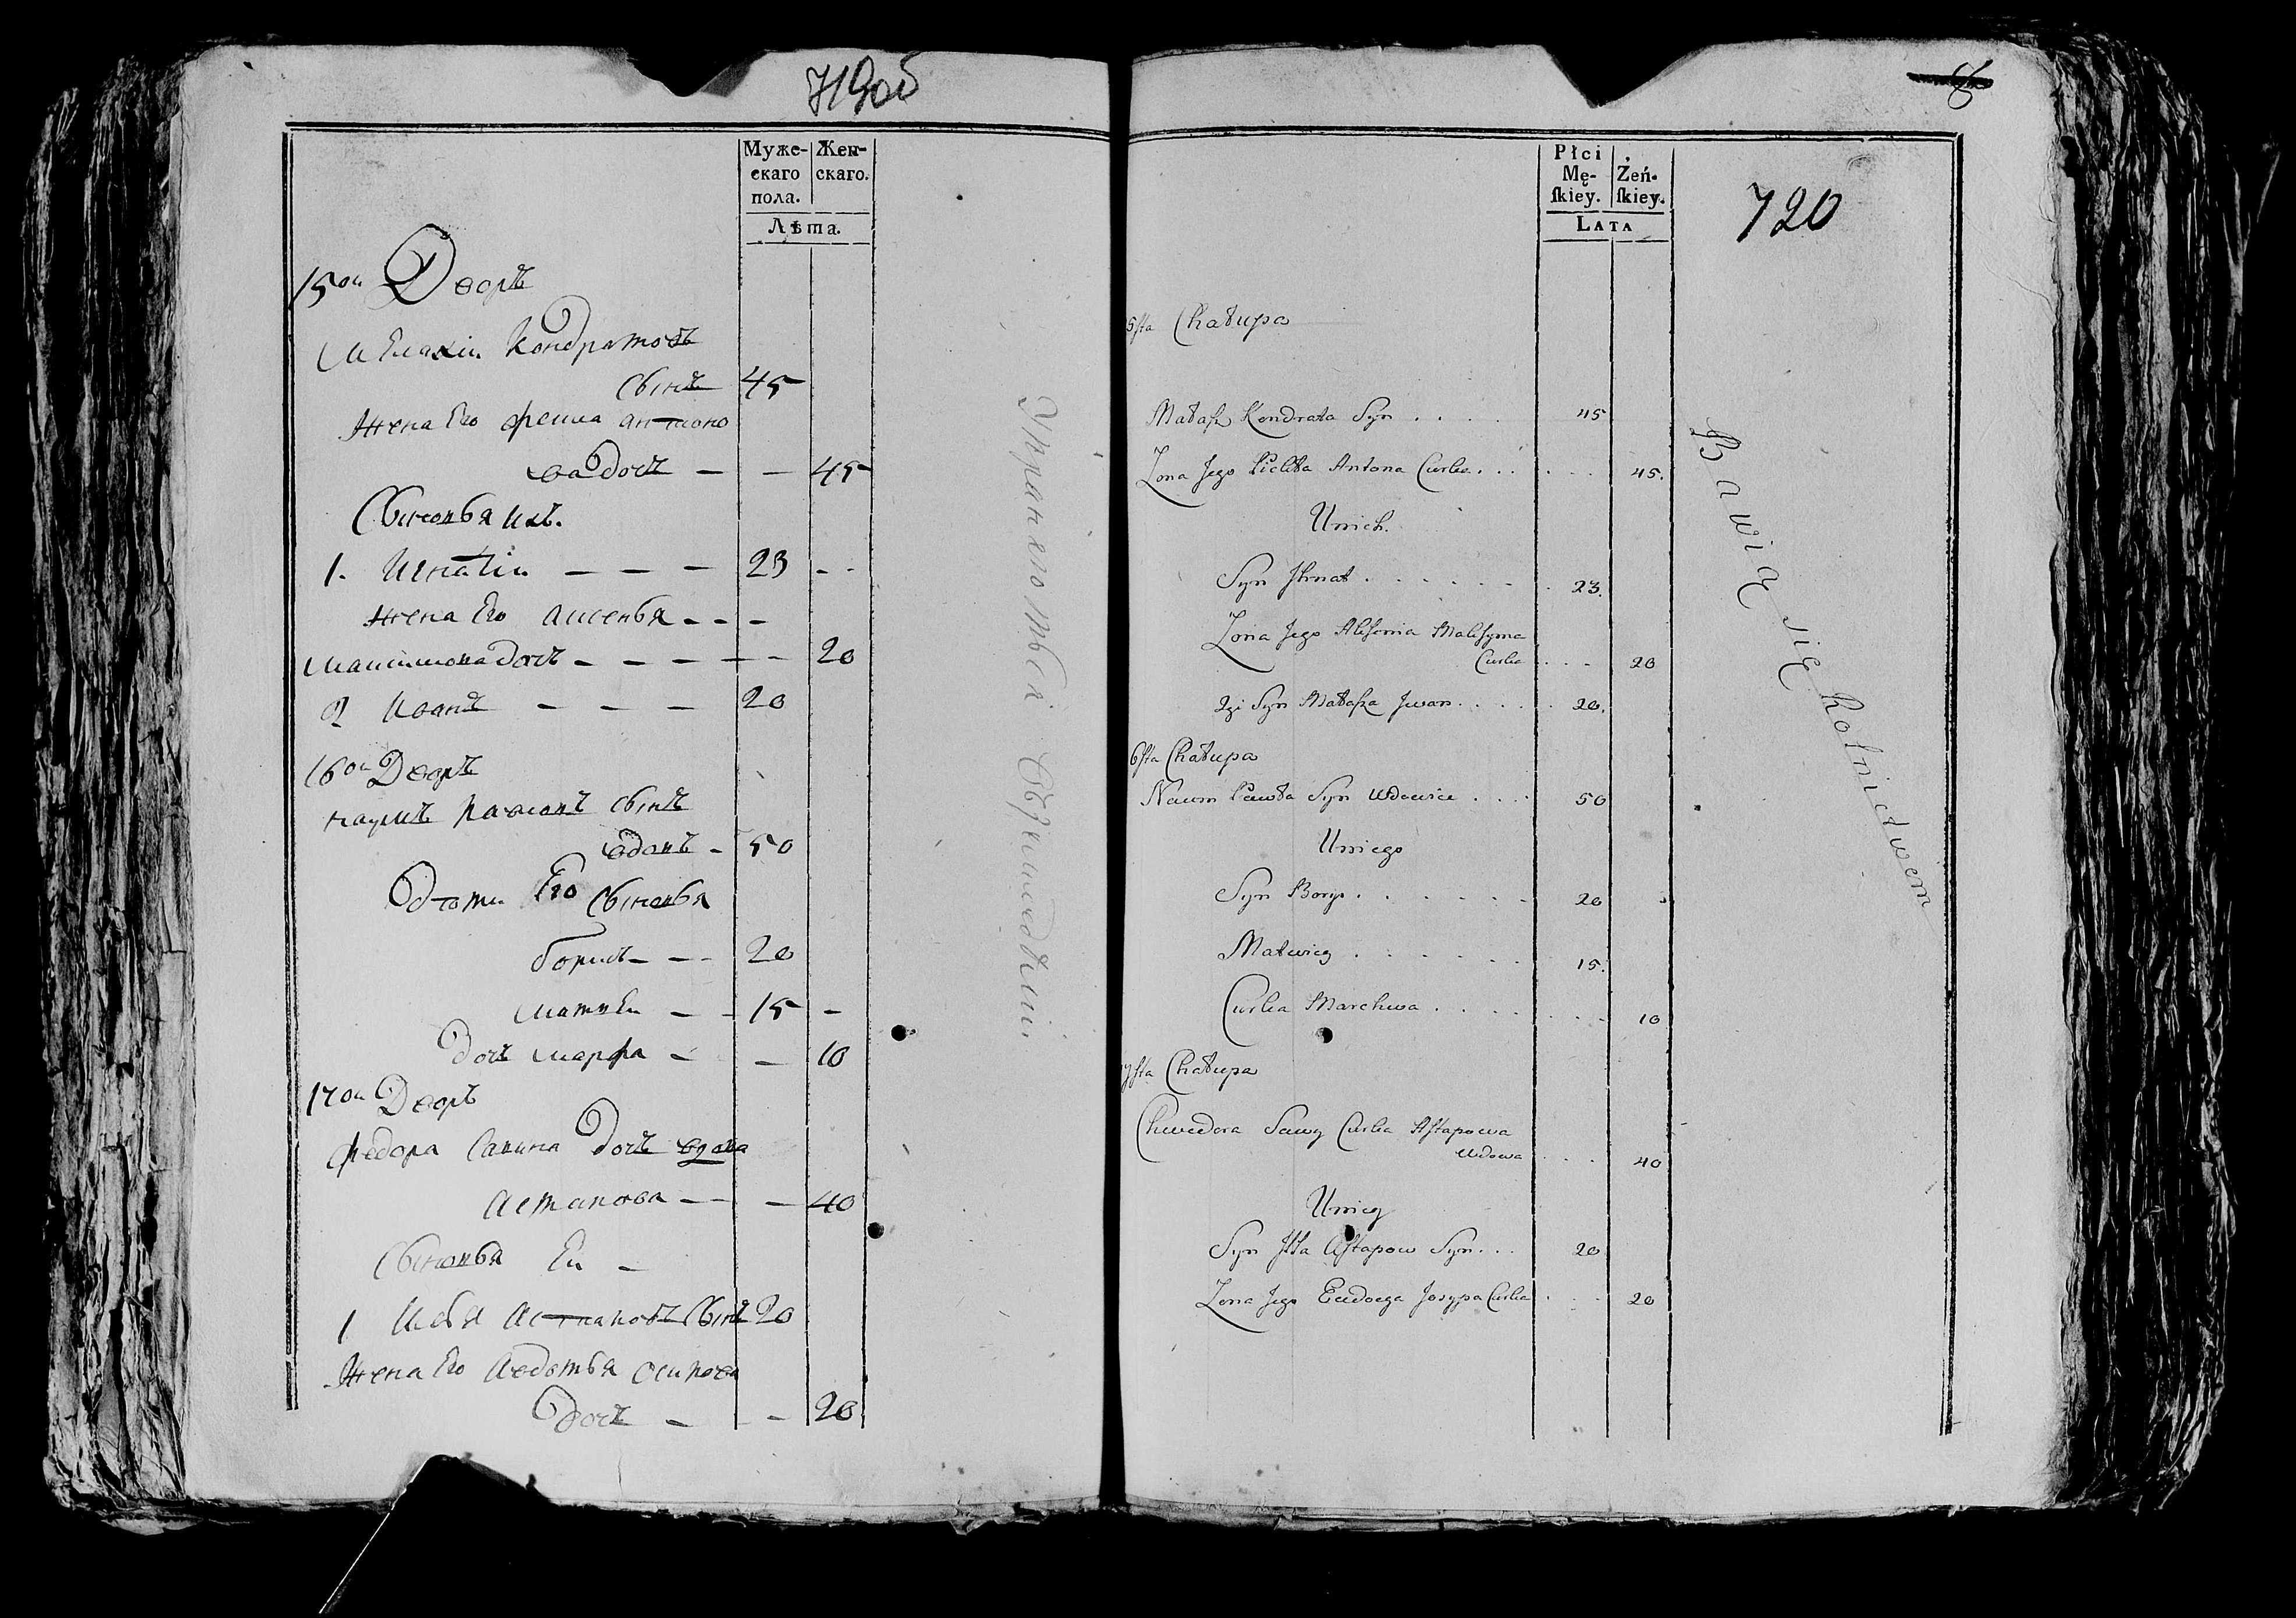 719об
Муже-
скаго
пола.
Жен-
скаго.
Лѣта.
15ои Дворъ
Малахіи Кондратовъ
сынъ 45
Жена Его антоно
ва дочь — — 45
Сыновья ихъ.
1. Игнатіи — — — 23 - -
жена Его аксенья - - -
максимова дочь - - — — — 20
2 Иванъ — — — 20
16ои Дворъ
наумъ сынъ
вдовъ - 50
Его Сыновья
борисъ - — - 20
матвеи — - 15 -
дочь марфа - — 10
17ои Дворъ
федора Савина дочь вдова
астапова — - — 40
Сыновья Еи -
1 Илья Астаповъ Сынъ 20
Жена Его Авдотья осипова
дочь — - 20
Упражняются
Płci
Mę-
ſkiey.
Żeń-
ſkiey.
LATA
720
5ſta Chałupa
Małaſz Kondrata Syn . . . . 45
Żona Jego Antona Curka . . . . . 45.
Unich.
Syn Jhnat . . . . . . 23.
Żona Jego Akſenia Makſyma
Curka . . . 20
2gi Syn Małaſza Jwan . . . . . 20.
6ſta Chałupa
Naum Pawła Syn Wdowiec . . . 50
Uniego
Syn Borys . . . . . . 20
Matwiey . . . . . . 15.
Curka Marchwa . . . . . . . 10
7ſta Chałupa
Chwedora Sawy Curka Aſtapowa
Wdowa . . . 40
Uniey
Syn Jlla Aſtapow Syn . . . 20
Żona Jego Eudocya Josypa Curka . . . 20
Bawią się Rolnictwem